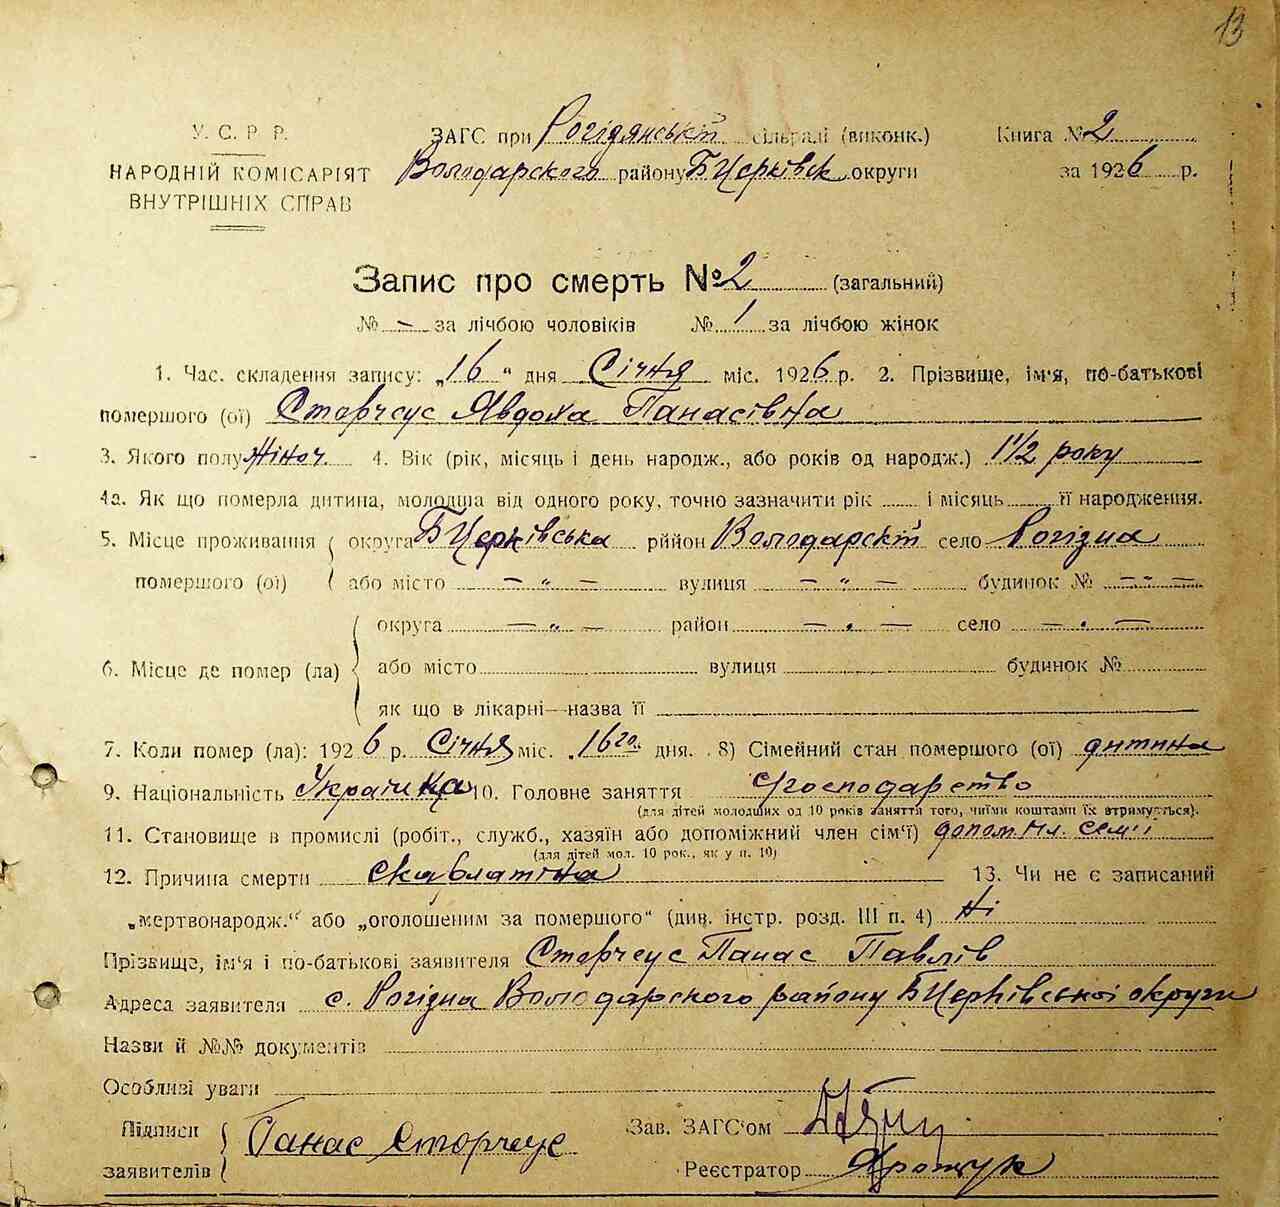 13
У. С. Р. Р. ЗАГС при Рогідянській сільраді (виконк.) Книга № 2
НАРОДНІЙ КОМІСАРІЯТ Володарского району Б Церківск округи за 1926 р.
ВНУТРІШНІХ СПРАВ
Запис про смерть № 2 (загальний)
№ – за лічбою чоловіків № 1 за лічбою жінок
1. Час. складення запису: „16“ дня Січня міс. 1926 р. 2. Прізвище, ім'я, по-батькові
помершого (ої) Сторчеус Явдоха Панасівна
3. Якого полу Жіноч. 4. Вік (рік, місяць і день народж., або років од народж.) 1 1/2 року
4а. Як що померла дитина, молодша від одного року, точно зазначити рік і місяць її народження.
5. Місце проживання округа Б Церківська рййон Володарскій село Рогізна
помершого (ої) або місто – „ – вулиця – „ – будинок № – „ –
округа – „ – район – „ – село – „ –
6. Місце де помер (ла) або місто вулиця будинок №
як що в лікарні—назва її
7. Коли помер (ла): 1926 р. Січня міс. „16го“ дня. 8) Сімейний стан помершого (ої) дитина
9. Національність Українка 10. Головне заняття господарство
(для дітей молодших од 10 років заняття того, чиїми коштами їх втримується).
11. Становище в промислі (робіт., служб., хазяїн або допоміжний член сім'ї) допом чл. семії
(для дітей мол. 10 рок., як у п. 10)
12. Причина смерти Скарлатіна 13. Чи не є записаний
„мертвонародж.“ або „оголошеним за помершого“ (див. інстр. розд. III п. 4) Ні
Прізвище, ім'я і по-батькові заявителя Сторчеус Панас Павлів
Адреса заявителя с. Рогізна Володарского району Б Церківської округи
Назви й №№ документів
Особлизі уваги
Підписи Панас Сторчеус Зав. ЗАГС'ом
заявителів Реєстратор